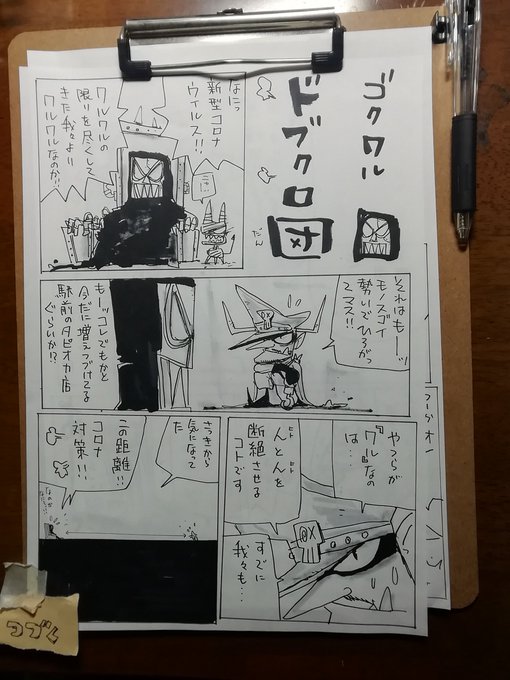 ゴクワル
ドブクロ
団
だん
なにっ
新型コロナ
ウィルス!!
ワルワルの
限りを尽くして
きた我々より
ワルワルなのか!!
それはもーーッ
モノスゴイ
勢いでひろがっ
てマス!!
もーッコレでもかと
今だに増えつづけてる
駅前のタピオカ店
ぐらいか!?
やつらが
『ワル』なの
は…
ヒト
ヒト
んとんを
断絶させる
コトです
すでに
我々も…
さっきから
気になって
た
この距離!!
コロナ
対策!!
つづく